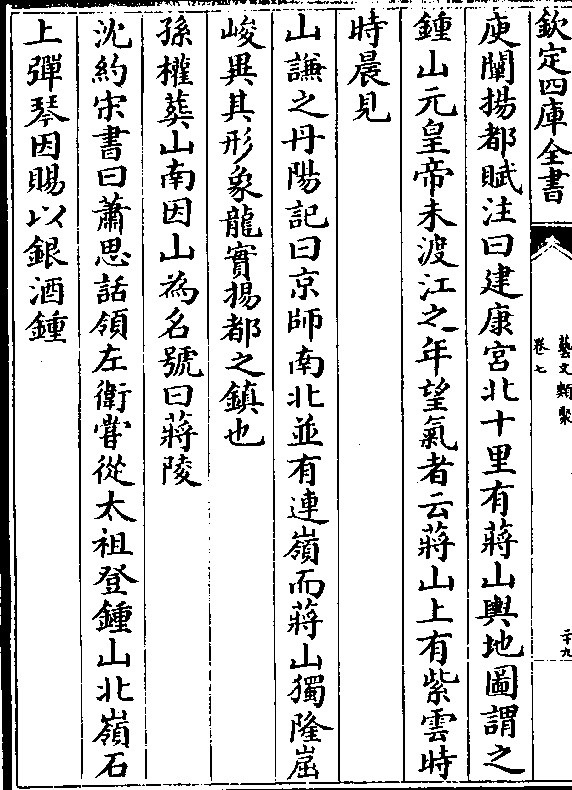 欽定四庫全書
藝文類聚
卷七
二十九
庾闡揚都賦注曰建康宮北十里有蔣山輿地圖謂之
鍾山元皇帝未渡江之年望氣者云蔣山上有紫雲時
時晨見
山謙之丹陽記曰京師南北並有連嶺而蔣山獨隆崫
峻異其形象龍實揚都之鎮也
孫權葬山南因山為名號曰蔣陵
沈約宋書曰蕭思話領左衛嘗從太祖登鍾山北嶺石
上彈琴因賜以銀酒鍾